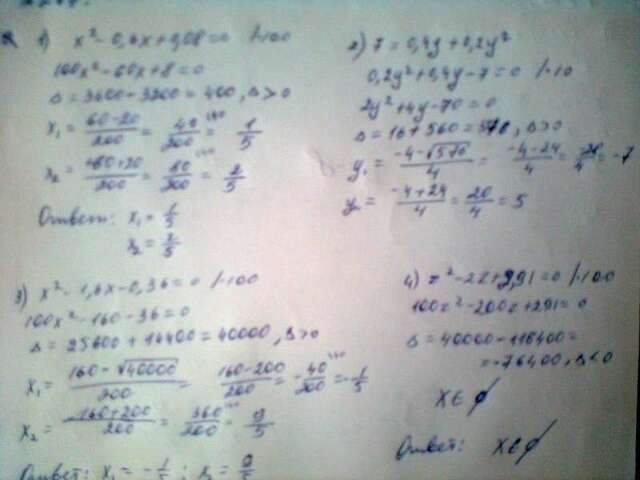 1) x² - 0,6x + 0,08 = 0 /·100
100x² - 60x + 8 = 0
Δ = 3600 - 3200 = 400, Δ > 0
x₁ = (60-20)/200 = 40/200 = 1/5
x₂ = (60+20)/200 = 80/200 = 2/5
Ответ: x₁ = 1/5
x₂ = 2/5
2) 7 = 0,4y + 0,2y²
0,2y² + 0,4y - 7 = 0 /·10
2y² + 4y - 70 = 0
Δ = 16 + 560 = 576, Δ > 0
y₁ = (-4-√576)/4 = (-4-24)/4 = -28/4 = -7
y₂ = (-4+24)/4 = 20/4 = 5
3) x² - 1,6x - 0,36 = 0 /·100
100x² - 160 - 36 = 0
Δ = 25600 + 14400 = 40000, Δ > 0
x₁ = (160-√40000)/200 = (160-200)/200 = -40/200 = -1/5
x₂ = (160+200)/200 = 360/200 = 9/5
Ответ: x₁ = -1/5; x₂ = 9/5
4) z² - 2z + 2,91 = 0 /·100
100z² - 200z + 291 = 0
Δ = 40000 - 116400 =
= -76400, Δ < 0
x∈∅
Ответ: x∈∅